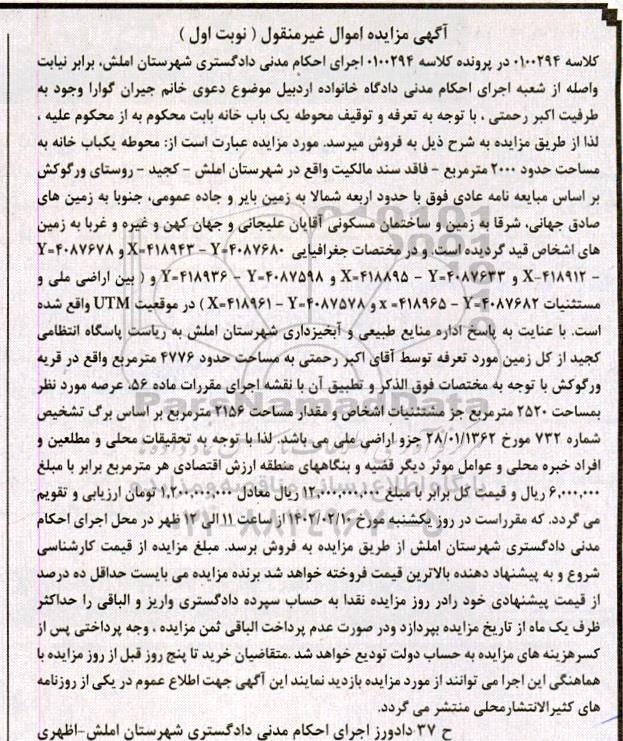 آگهی مزایده اموال غیرمنقول ( نوبت اول )
کلاسه ۰۱۰۰۲۹۴ در پرونده کلاسه ۰۱۰۰۲۹۴ اجرای احکام مدنی دادگستری شهرستان املش، برابر نیابت
واصله از شعبه اجرای احکام مدنی دادگاه خانواده اردبیل موضوع دعوی خانم جیران گوارا وجود به
طرفیت اکبر رحمتی ، با توجه به تعرفه و توقیف محوطه یک باب خانه بابت محکوم به از محکوم علیه ،
لذا از طریق مزایده به شرح ذیل به فروش میرسد. مورد مزایده عبارت است از: محوطه یکباب خانه به
مساحت حدود ۲۰۰۰ مترمربع - فاقد سند مالکیت واقع در شهرستان املش - کجید - روستای ورگوکش
بر اساس مبایعه نامه عادی فوق با حدود اربعه شمالا به زمین بایر و جاده عمومی، جنوبا به زمین های
صادق جهانی، شرقا به زمین و ساختمان مسکونی آقایان علیجانی و جهان کهن و غیره و غربا به زمین
های اشخاص قید گردیده است. و در مختصات جغرافیایی X=۴۱۸۹۴۳ - Y=۴۰۸۷۶۸۰ و Y=۴۰۸۷۶۷۸
- X-۴۱۸۹۱۲ و Y=۴۰۸۷۶۳۳ - X=۴۱۸۸۹۵ و Y=۴۰۸۷۵۹۸ - Y=۴۱۸۹۳۶ و ( بین اراضی ملی و
مستثنیات Y-۴۰۸۷۶۸۲ - x=۴۱۸۹۶۵ و Y=۴۰۸۷۵۷۸ - X=۴۱۸۹۶۱ ) در موقعیت UTM واقع شده
است. با عنایت به پاسخ اداره منابع طبیعی و آبخیزداری شهرستان املش به ریاست پاسگاه انتظامی
کجید از کل زمین مورد تعرفه توسط آقای اکبر رحمتی به مساحت حدود ۴۷۷۶ مترمربع واقع در قریه
ورگوکش با توجه به مختصات فوق الذکر و تطبیق آن با نقشه اجرای مقررات ماده ۵۶، عرصه مورد نظر
بمساحت ۲۵۲۰ مترمربع جز مستثنیات اشخاص و مقدار مساحت ۲۱۵۶ مترمربع بر اساس برگ تشخیص
شماره ۷۳۲ مورخ ۲۸/۰۱/۱۳۶۲ جزو اراضی ملی می باشد. لذا با توجه به تحقیقات محلی و مطلعین و
افراد خبره محلی و عوامل موثر دیگر قضیه و بنگاههای منطقه ارزش اقتصادی هر مترمربع برابر با مبلغ
۶,۰۰۰,۰۰۰ ریال و قیمت کل برابر با مبلغ ۱۲,۰۰۰,۰۰۰,۰۰۰ ریال معادل ۱,۲۰۰,۰۰۰,۰۰۰ تومان ارزیابی و تقویم
می گردد. که مقرراست در روز یکشنبه مورخ ۱۴۰۲/۰۲/۱۰ از ساعت ۱۱ الی ۱۲ ظهر در محل اجرای احکام
مدنی دادگستری شهرستان املش از طریق مزایده به فروش برسد. مبلغ مزایده از قیمت کارشناسی
شروع و به پیشنهاد دهنده بالاترین قیمت فروخته خواهد شد برنده مزایده می بایست حداقل ده درصد
از قیمت پیشنهادی خود رادر روز مزایده نقدا به حساب سپرده دادگستری واریز و الباقی را حداکثر
ظرف یک ماه از تاریخ مزایده بپردازد ودر صورت عدم پرداخت الباقی ثمن مزایده ، وجه پرداختی پس از
کسرهزینه های مزایده به حساب دولت تودیع خواهد شد .متقاضیان خرید تا پنج روز قبل از روز مزایده با
هماهنگی این اجرا می توانند از مورد مزایده بازدید نمایند این آگهی جهت اطلاع عموم در یکی از روزنامه
های کثیرالانتشارمحلی منتشر می گردد.
ح ۳۷ دادورز اجرای احکام مدنی دادگستری شهرستان املش-اظهری
ParsNamadData
پایگاه اطلاع رسانی مناقصه و مزایده
۰۲۱-۸۸۳۴۹۶۷۰-۵